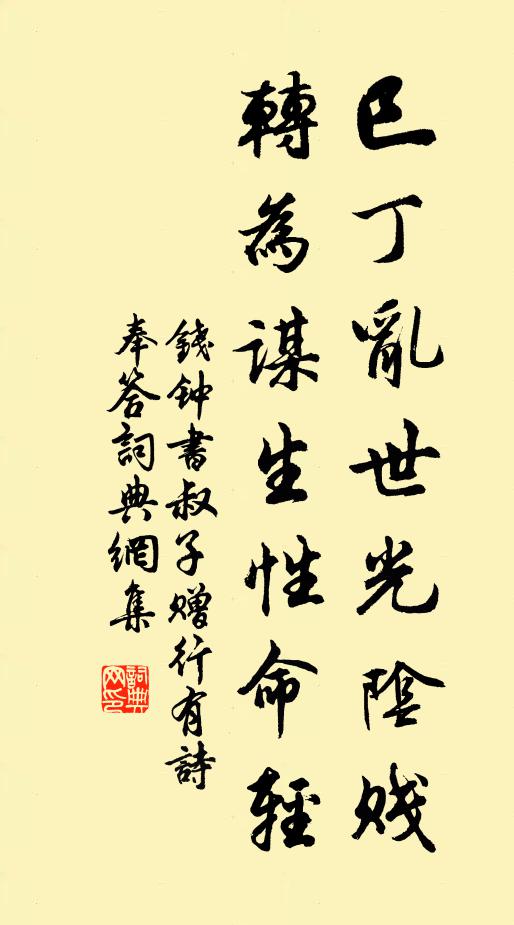 已丁亂世光陰賤
轉為謀生性命輕
錢钟書叔子赠行有詩
奉答詞典網集
詞典网印